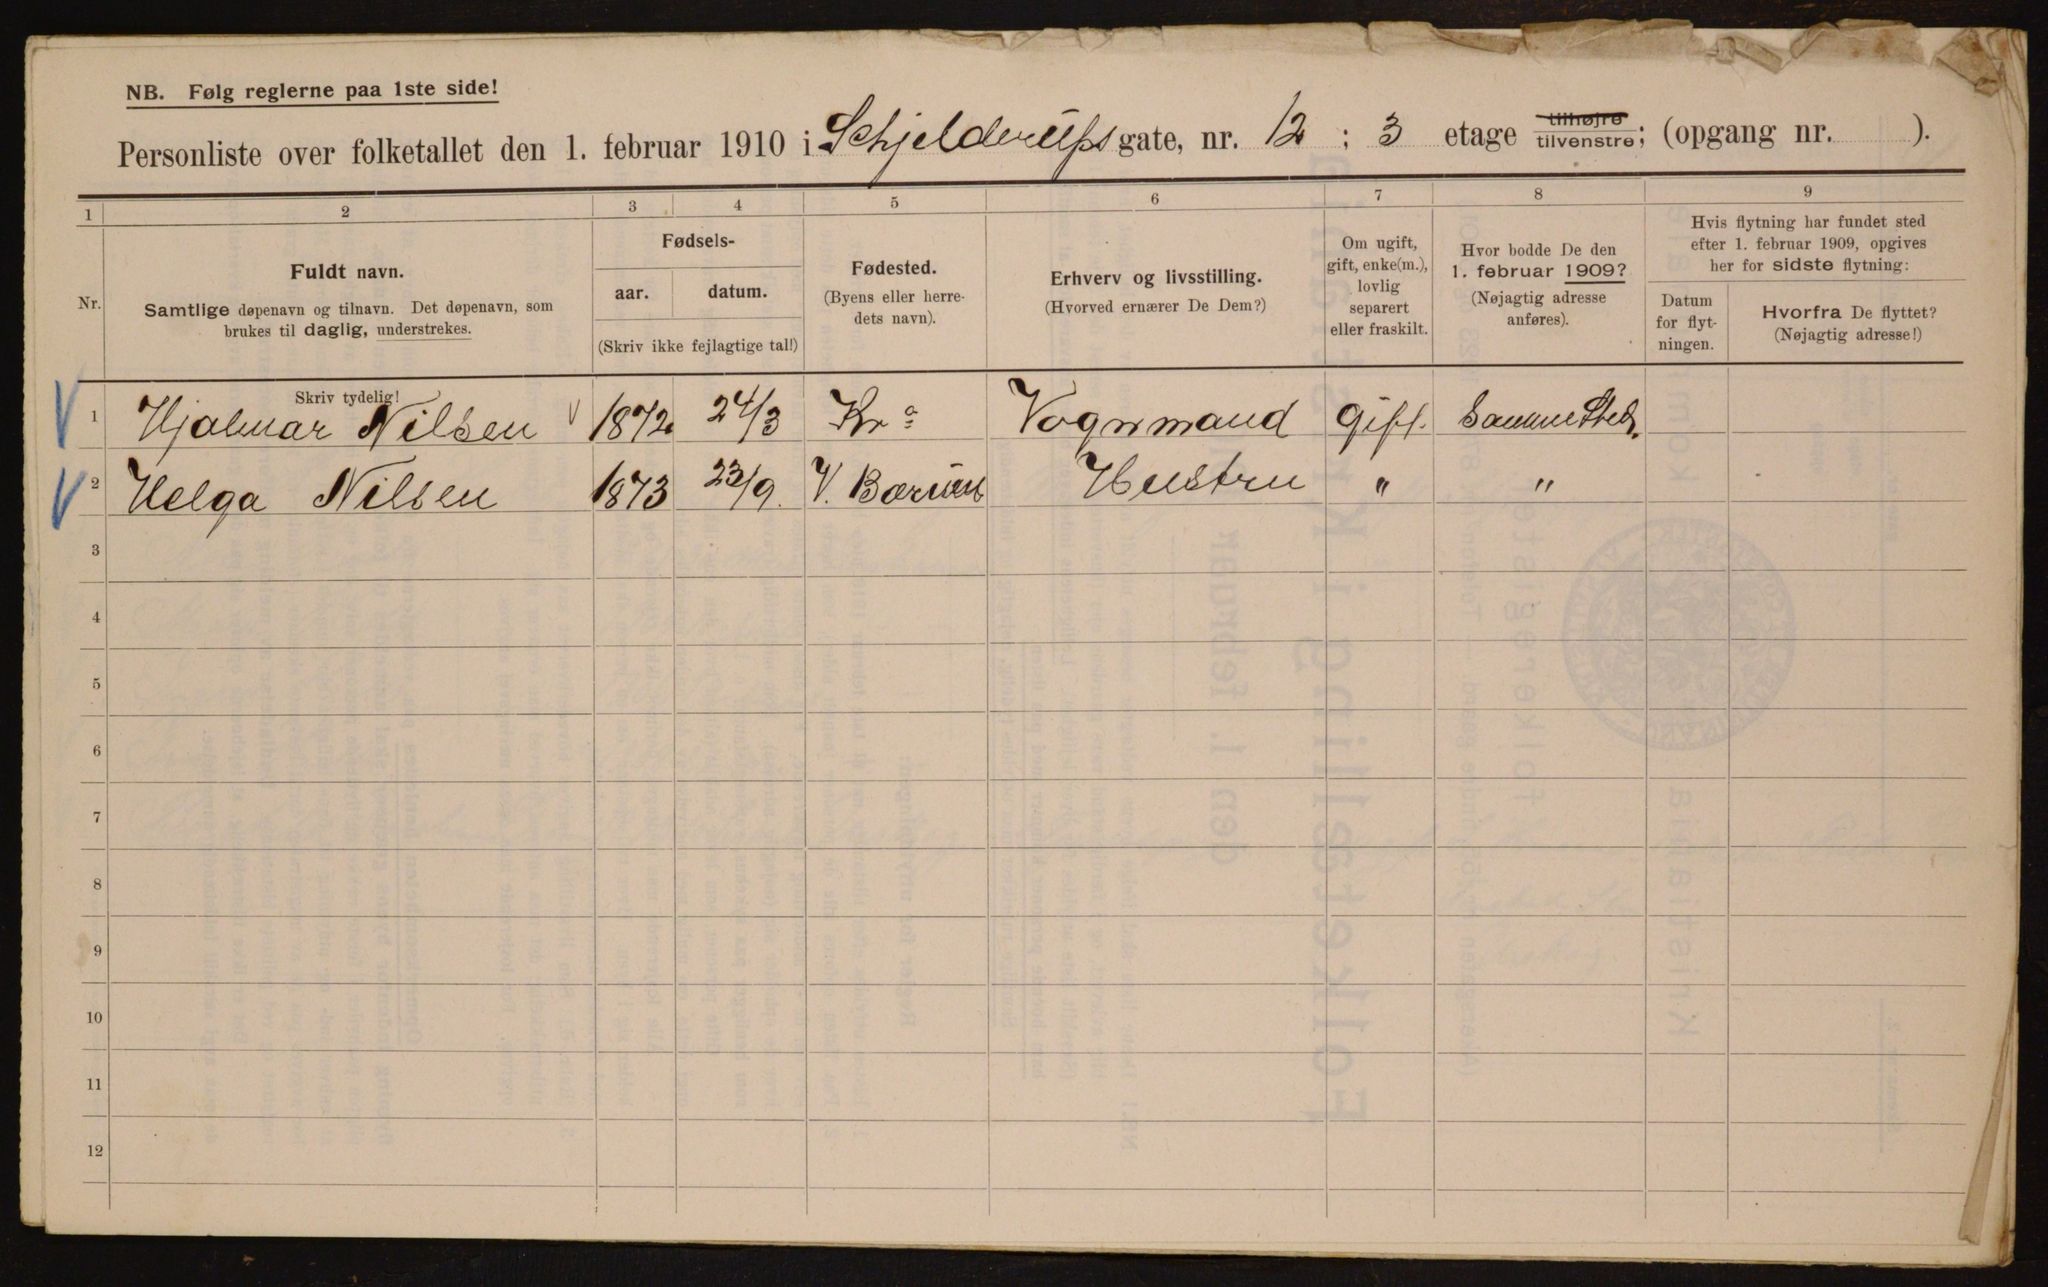 NB. Følg reglerne paa 1ste side!
Personliste over folketallet den 1. februar 1910 i Schjelderups gate, nr. 12 : 3 etage tilhøjre tilvenstre; (opgang nr. ).
1 2 3 4 5 6 7 8 9
Nr.
Fuldt navn.
Samtlige døpenavn og tilnavn. Det døpenavn, som
brukes til daglig, understrekes.
Fødsels-
aar. datum.
(Skriv ikke fejlagtige tal!)
Fødested.
(Byens eller herre-
dets navn).
Erhverv og livsstilling.
(Hvorved ernærer De Dem?)
Om ugift,
gift, enke(m.),
lovlig
separert
eller fraskilt.
Hvor bodde De den
1. februar 1909?
(Nøjagtig adresse
anføres).
Hvis flytning har fundet sted
efter 1. februar 1909, opgives
her for sidste flytning:
Datum
for flyt-
ningen.
Hvorfra De flyttet?
(Nøjagtig adresse!)
Skriv tydelig!
1 Hjalmar Nilsen 1872 24/3 Kra Vognmand Gift. Samme Sted.
2 Helga Nilsen 1873 23/9. V. Bærum Hustru " "
3
4
5
6
7
8
9
10
11
12